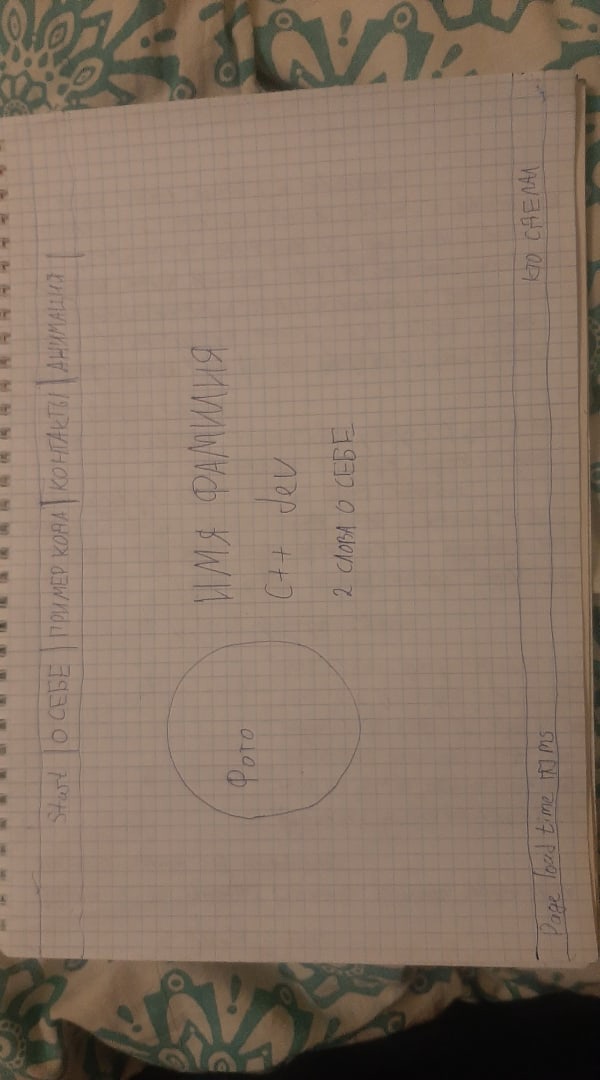 Start | О СЕБЕ | ПРИМЕР КОДА | КОНТАКТЫ | АНИМАЦИЯ |
Фото
ИМЯ ФАМИЛИЯ
C++ dev
2 СЛОВА О СЕБЕ
Page load time ms
КТО СДЕЛАЛ